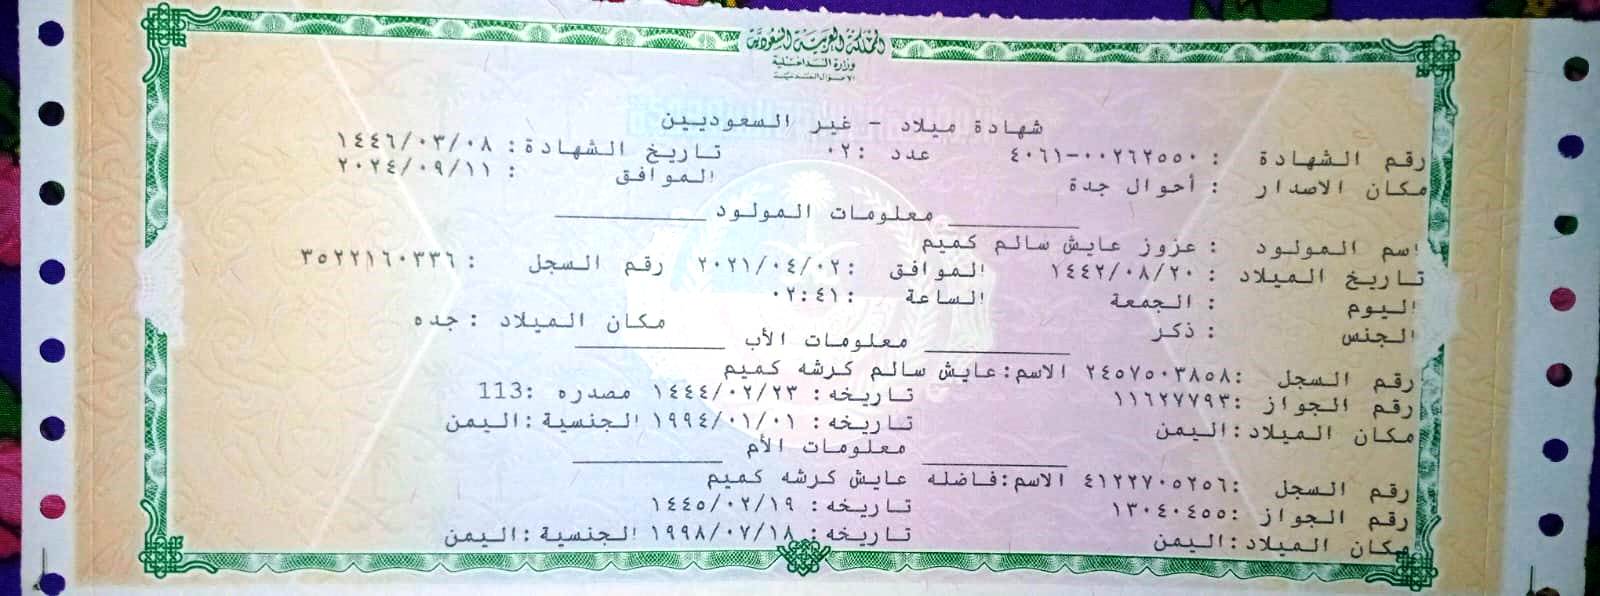 المملكة العربية السعودية
وزارة الداخلية
الاحوال المدنية
شهادة ميلاد - غير السعوديين
رقم الشهادة : ٠٠٢٦٢٥٥٠-٤٠٦١ عدد :٠٢ تاريخ الشهادة: ١٤٤٦/٠٣/٠٨
مكان الاصدار : أحوال جدة الموافق : ٢٠٢٤/٠٩/١١
معلومات المولود
اسم المولود : عزوز عايش سالم كميم
تاريخ الميلاد : ١٤٤٢/٠٨/٢٠ الموافق :٢٠٢١/٠٤/٠٢ رقم السجل : ٣٥٢٢١٦٠٣٣٦
اليوم : الجمعة الساعة :٠٢:٤١
الجنس : ذكر مكان الميلاد :جده
معلومات الأب
رقم السجل :٢٤٥٧٥٠٣٨٥٨ الاسم:عايش سالم كرشه كميم
رقم الجواز :١١٦٢٧٧٩٣ تاريخه: ١٤٤٤/٠٢/٢٣ مصدره :113
مكان الميلاد:اليمن تاريخه: ١٩٩٤/٠١/٠١ الجنسية:اليمن
معلومات الأم
رقم السجل :٤١٢٢٧٠٥٢٥٦ الاسم:فاضله عايش كرشه كميم
رقم الجواز :١٣٠٤٠٤٥٥ تاريخه: ١٤٤٥/٠٢/١٩
مكان الميلاد:اليمن تاريخه: ١٩٩٨/٠٧/١٨ الجنسية:اليمن